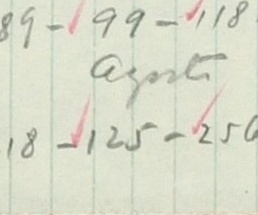 89 - 99 - 118
Agosti
18 - 125 - 256